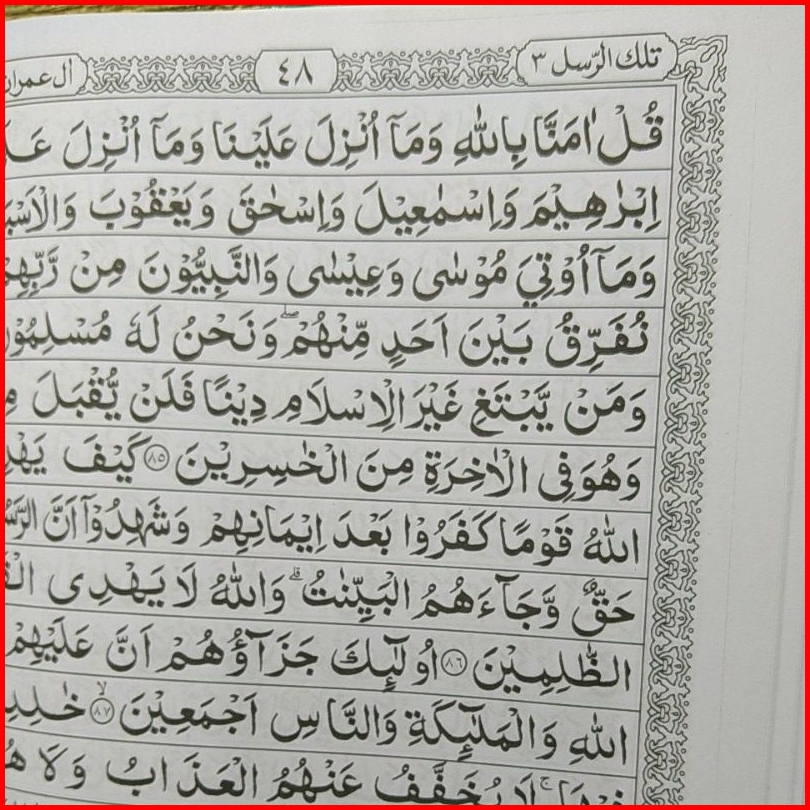 تلك الرّسل ٣ ٤٨ اٰل عمران
قُلْ اٰمَنَّا بِاللّٰهِ وَمَآ اُنْزِلَ عَلَيْنَا وَمَآ اُنْزِلَ
اِبْرٰهِيْمَ وَاِسْمٰعِيْلَ وَاِسْحٰقَ وَيَعْقُوْبَ
وَمَآ اُوْتِيَ مُوْسٰى وَعِيْسٰى وَالنَّبِيُّوْنَ مِنْ
نُفَرِّقُ بَيْنَ اَحَدٍ مِّنْهُمْ ۖ وَنَحْنُ لَهٗ
وَمَنْ يَّبْتَغِ غَيْرَ الْاِسْلَامِ دِيْنًا فَلَنْ يُّقْبَلَ
وَهُوَ فِى الْاٰخِرَةِ مِنَ الْخٰسِرِيْنَ ٨٥ كَيْفَ
اللّٰهُ قَوْمًا كَفَرُوْا بَعْدَ اِيْمَانِهِمْ وَشَهِدُوْٓا اَنَّ
حَقٌّ وَّجَآءَهُمُ الْبَيِّنٰتُ ۗ وَاللّٰهُ لَا يَهْدِى
الظّٰلِمِيْنَ ٨٦ اُولٰٓئِكَ جَزَآؤُهُمْ اَنَّ عَلَيْهِمْ
اللّٰهِ وَالْمَلٰٓئِكَةِ وَالنَّاسِ اَجْمَعِيْنَ ۙ ٨٧
لَا يُخَفَّفُ عَنْهُمُ الْعَذَابُ وَلَا